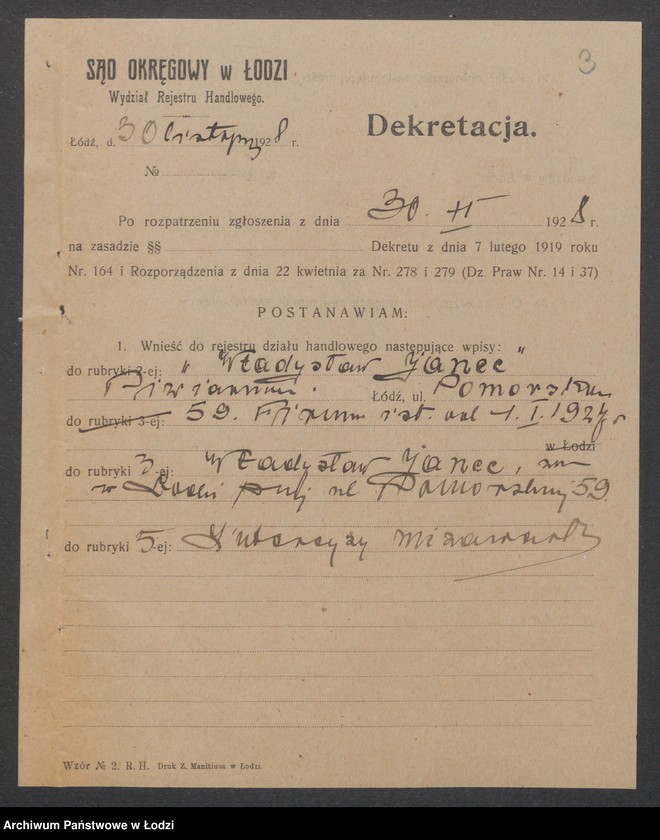 3
SĄD OKRĘGOWY w ŁODZI
Wydział Rejestru Handlowego.
Dekretacja.
Łódź, d. 30 listop 1928 r.
№
Po rozpatrzeniu zgłoszenia z dnia 30. XI 1928 r.
na zasadzie §§ Dekretu z dnia 7 lutego 1919 roku
Nr. 164 i Rozporządzenia z dnia 22 kwietnia za Nr. 278 i 279 (Dz. Praw Nr. 14 i 37)
POSTANAWIAM:
1. Wnieść do rejestru działu handlowego następujące wpisy:
do rubryki 2-ej: "Władysław Janec"
Piwiarnia. Łódź, ul. Pomorska
do rubryki 3-ej: 59. Firma ist. od 1.I.1927 r
w Łodzi
do rubryki 3-ej: Władysław Janec, zam
w Łodzi przy ul Pomorskiej 59.
do rubryki 5-ej: Intercyzy nie zawarł
Wzór № 2. R. H. Druk Z. Manitiusa w Łodzi.
Archiwum Państwowe w Łodzi